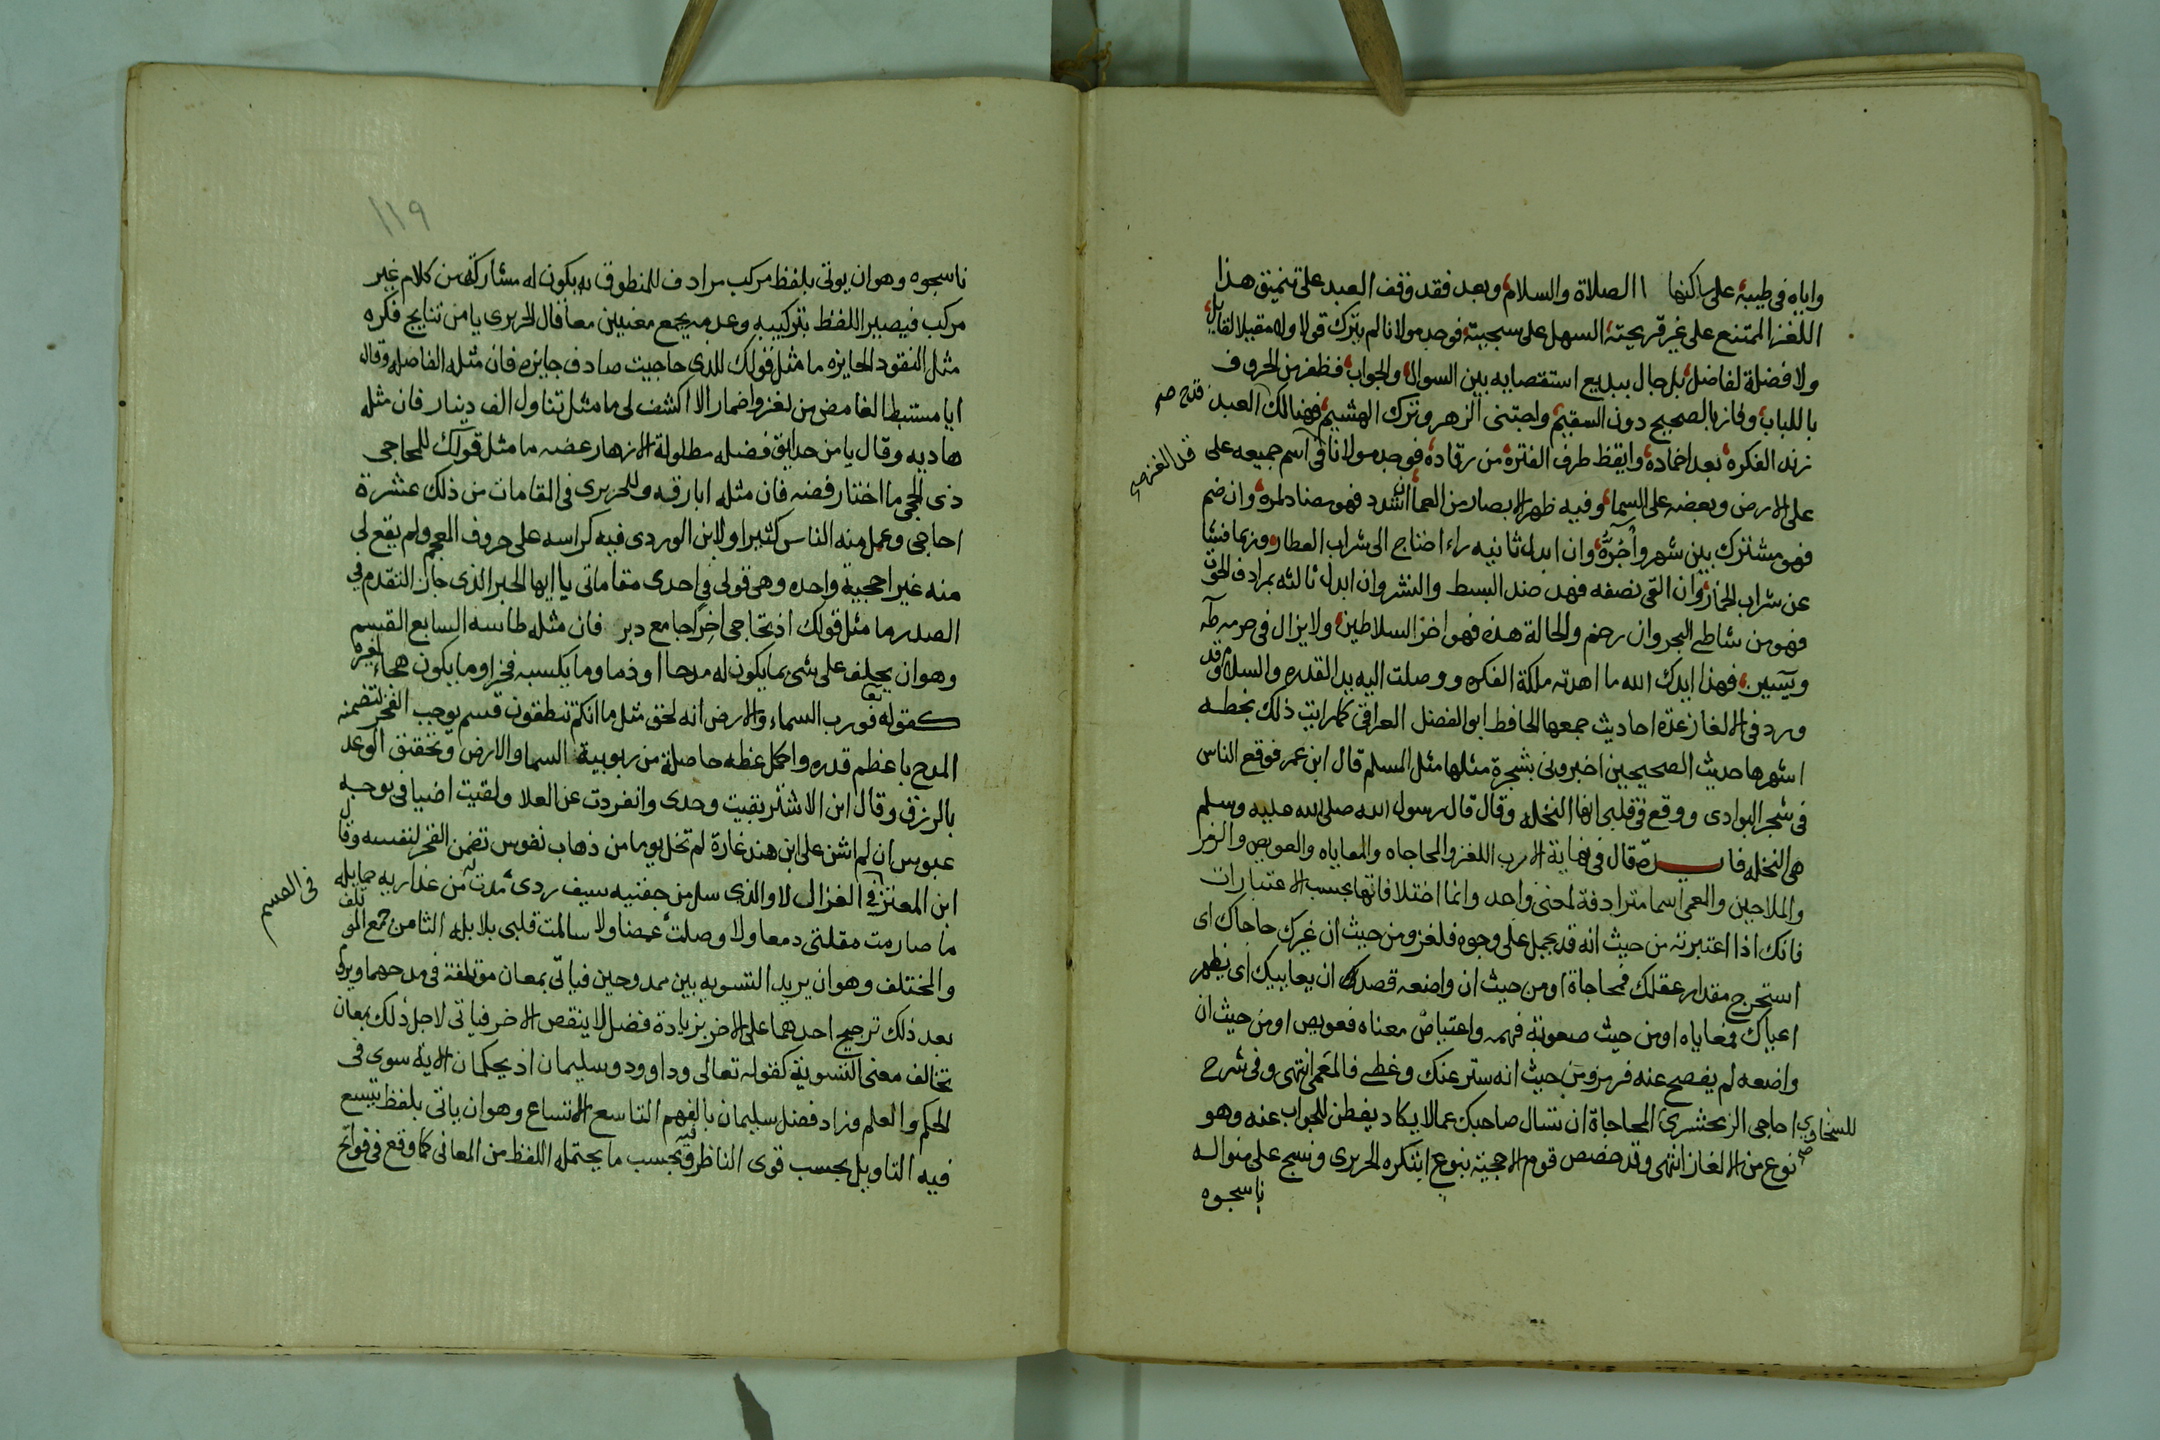 واياه في طيبة على ساكنها الصلاة والسلام وبعد فقد وقف العبد على تنميق هذا
اللغز الممتنع على غير قريحته السهل على سجيته فوجد مولانا لم يترك قولا ولا مقيلا لقايل
ولا فضلة لفاضل بل جال ببديع استقصايه بين السوال والجواب فظفر من الحروف
باللباب وفاز بالصحيح دون السقيم واجتنى الزهر وترك الهشيم فهنالك العبد قدح صح
زند الفكرة بعد اخماده وايقظ طرف الفترة من رقاده فوجد مولانا في اسم جميعه على
قد الغز صح
على الارض وبعضه على السماء وفيه ظهر الابصار من العما ان شدد فهو مضاد لمره وان ضم
فهو مشترك بين شهر وأجرة وان ابدل ثانيه راء احتاج الى شراب العطار وربما فشا
عن شراب الخمار وان القى نصفه فهد ضد البسط والنشر وان ابدل ثالثه بمرادف الحوت
فهو من شاطئ البحر وان رخم والحالة هذه فهو اخز السلاطين ولا يزال في حرمة طه
ويسين فهذا ايدك الله ما اهدته ملكة الفكره ووصلت اليه يد القدره والسلام وقد
ورد في الالغاز عدة احاديث جمعها الحافظ ابو الفضل العراقي كما رايت ذلك بخطه
اشهرها حديث الصحيحين اخبروني بشجرة مثلها مثل المسلم قال ابن عمر فوقع الناس
في شجر البوادى ووقع في قلبي انها النخله وقال قال رسول الله صلى الله عليه وسلم
هي النخله فايدة قال في نهاية الارب اللغز والمحاجاه والمعاياه والعويص والرمز
والملاحن والمعمى اسما مترادفة لمعنى واحد وانما اختلافاتها بحسب الاعتبارات
فانك اذا اعتبرته من حيث انه قد يحمل على وجوه فلغز ومن حيث ان غيرك حاجاك اى
استخرج مقدار عقلك فمحاجاة او من حيث ان واضعه قصدك ان يعاييك اى يظهر
اعياك فمعاياه او من حيث صعوبة فهمه واعتياض معناه فعويص او من حيث ان
واضعه لم يفصح عنه فرمز ومن حيث انه ستر عنك وغطى فالمعمى انتهى وفي شرح
احاجى الزمخشرى المحاجاة ان تسال صاحبك عما لا يكاد يفطن للجواب عنه وهو
للسخاوي صح
نوع من الالغاز انتهى وقد خصص قوم الاحجية بنوع ابتكره الحريرى ونسج على منواله
ناسجوه
١١٩
ناسجوه وهو ان يوتى بلفظ مركب مرادف للمنطوق به يكون له مشاركة من كلام غير
مركب فيصير اللفظ بتركيبه وعدمه يجمع معنيين معا قال الحريرى يا من نتايج فكره
مثل النقود الجايزه ما مثل قولك للذى حاجيت صادف جايزه فان مثله الفاصله وقال
ايا مستنبط الغامض من لغز واضمار الا اكشف لى ما مثل تناول الف دينار فان مثله
هاديه وقال يا من حدايق فضله مطلولة الازهار غضه ما مثل قولك للمحاجى
ذى الحجى ما اختار فضه فان مثله ابارقه وللحريرى في المقامات من ذلك عشرة
احاجى وعمل منه الناس كثيرا ولابن الوردى فيه كراسه على حروف المعجم ولم يقع لى
منه غير احجية واحده وهي قولى في احدى مقاماتى يا ايها الحبر الذى حاز التقدم في
الصدر ما مثل قولك اذ تحاجى اخرا جامع دبر فان مثله طاسه السابع القسم
وهو ان يحلف على شى بما يكون له مدحا او ذما وما يكسبه فخرا وما يكون هجاء لغيره
كقوله تع فورب السماء والارض انه لحق مثل ما انكم تنطقون قسم يوجب الفخر لتضمنه
المدح باعظم قدره واكمل عظمه حاصلة من ربوبية السما والارض وتحقق الوعد
بالرزق وقال ابن الاشتر بقيت وحدى وانفردت عن العلا ولقيت اضيافى بوجه
عبوس ان لم اشن على ابن هند غارة لم تخل يوما من ذهاب نفوس تضمن الفخر لنفسه وقال
ابن المعتز في الغزال لا والذى سل من جفنيه سيف ردى قدت له من عذاريه حمايله
في القسم
ما صارمت مقلتى دمعا ولا وصلت غمضا ولا سالمت قلبى بلابله الثامن جمع الموتلف
والمختلف وهو ان يريد التسويه بين ممدوحين فياتى بمعان موتلفة في مدحهما ويركب
بعد ذلك ترجيح احدهما على الاخر بزيادة فضل لا ينقص الاخر فياتى لاجل ذلك بمعان
تخالف معنى التسوية كقوله تعالى وداوود وسليمان اذ يحكمان الايه سوى في
الحكم والعلم وزاد فضل سليمان بالفهم التاسع الاتساع وهو ان ياتى بلفظ يتسع
فيه التاويل بحسب قوى الناظر فيه وبحسب ما يحتمله اللفظ من المعانى كما وقع في فواتح